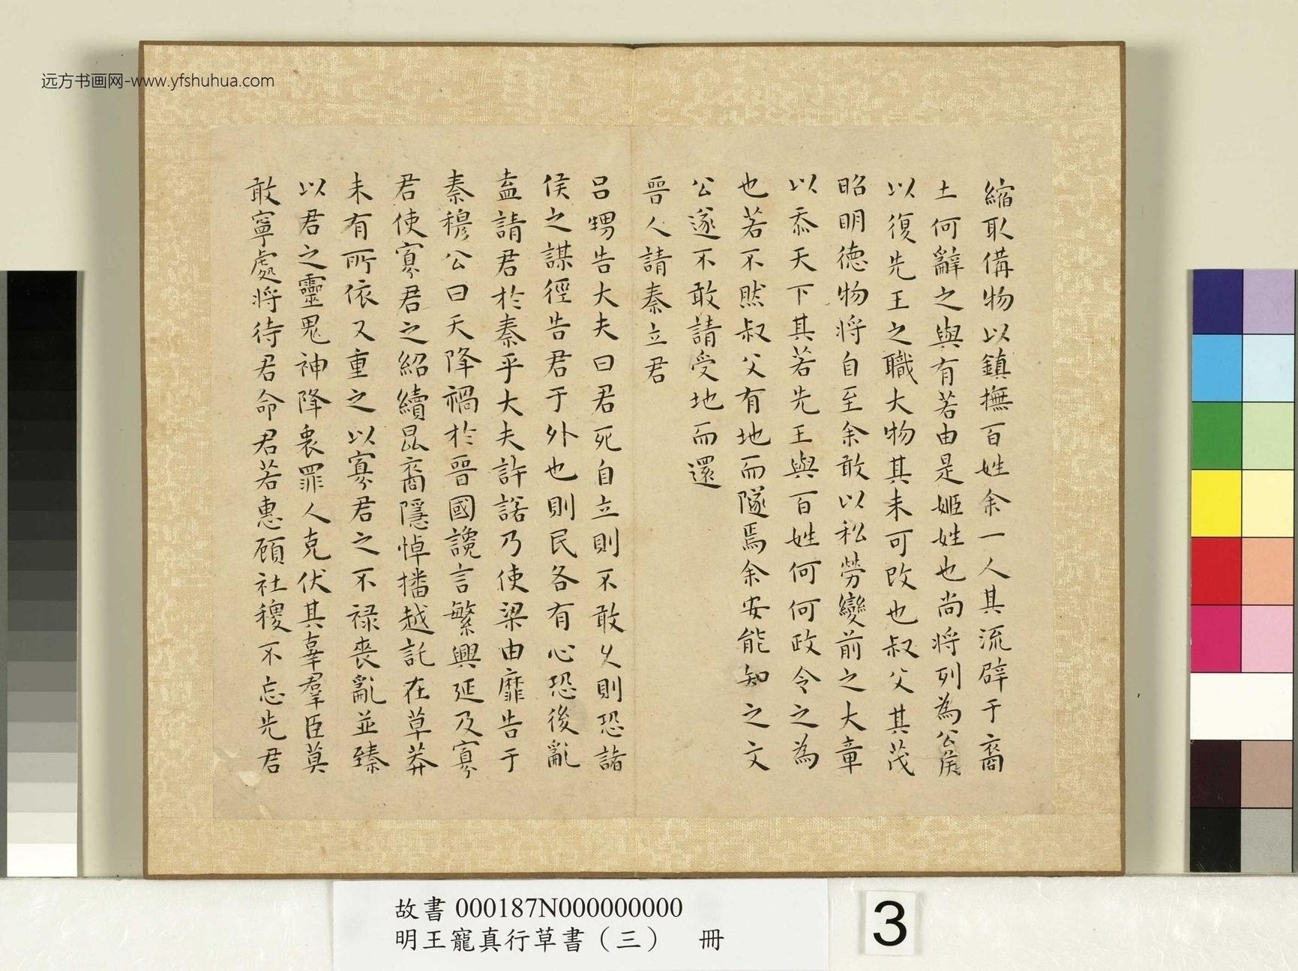 远方书画网-www.yfshuhua.com
縮取備物以鎮撫百姓余一人其流辟于裔
土何辭之與有若由是姬姓也尚將列為公侯
以復先王之職大物其未可改也叔父其茂
昭明德物將自至余敢以私勞變前之大章
以忝天下其若先王與百姓何何政令之為
也若不然叔父有地而隧焉余安能知之文
公遂不敢請受地而還
晉人請秦立君
呂甥告大夫曰君死自立則不敢久則恐諸
侯之謀徑告君于外也則民各有心恐後亂
盍請君於秦乎大夫許諾乃使梁由靡告于
秦穆公曰天降禍於晉國讒言繁興延及寡
君使寡君之紹續昆裔隱悼播越託在草莽
未有所依又重之以寡君之不祿喪亂並臻
以君之靈鬼神降衷罪人克伏其辜羣臣莫
敢寧處將待君命君若惠顧社稷不忘先君
故書 000187N000000000
明王寵真行草書（三） 冊
3